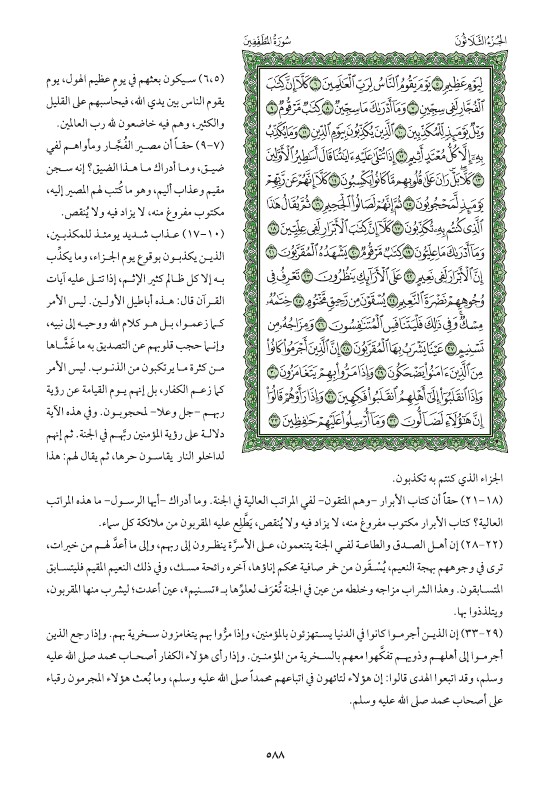 الجزء الثلاثون
سورة المطففين
لِيَوْمٍ عَظِيمٍ ٥ يَوْمَ يَقُومُ النَّاسُ لِرَبِّ الْعَالَمِينَ ٦ كَلَّا إِنَّ كِتَابَ
الْفُجَّارِ لَفِي سِجِّينٍ ٧ وَمَا أَدْرَاكَ مَا سِجِّينٌ ٨ كِتَابٌ مَرْقُومٌ ٩
وَيْلٌ يَوْمَئِذٍ لِلْمُكَذِّبِينَ ١٠ الَّذِينَ يُكَذِّبُونَ بِيَوْمِ الدِّينِ ١١ وَمَا يُكَذِّبُ
بِهِ إِلَّا كُلُّ مُعْتَدٍ أَثِيمٍ ١٢ إِذَا تُتْلَى عَلَيْهِ آيَاتُنَا قَالَ أَسَاطِيرُ الْأَوَّلِينَ
١٣ كَلَّا بَلْ رَانَ عَلَى قُلُوبِهِمْ مَا كَانُوا يَكْسِبُونَ ١٤ كَلَّا إِنَّهُمْ عَنْ رَبِّهِمْ
يَوْمَئِذٍ لَمَحْجُوبُونَ ١٥ ثُمَّ إِنَّهُمْ لَصَالُو الْجَحِيمِ ١٦ ثُمَّ يُقَالُ هَذَا
الَّذِي كُنْتُمْ بِهِ تُكَذِّبُونَ ١٧ كَلَّا إِنَّ كِتَابَ الْأَبْرَارِ لَفِي عِلِّيِّينَ ١٨
وَمَا أَدْرَاكَ مَا عِلِّيُّونَ ١٩ كِتَابٌ مَرْقُومٌ ٢٠ يَشْهَدُهُ الْمُقَرَّبُونَ ٢١
إِنَّ الْأَبْرَارَ لَفِي نَعِيمٍ ٢٢ عَلَى الْأَرَائِكِ يَنْظُرُونَ ٢٣ تَعْرِفُ فِي
وُجُوهِهِمْ نَضْرَةَ النَّعِيمِ ٢٤ يُسْقَوْنَ مِنْ رَحِيقٍ مَخْتُومٍ ٢٥ خِتَامُهُ
مِسْكٌ وَفِي ذَلِكَ فَلْيَتَنَافَسِ الْمُتَنَافِسُونَ ٢٦ وَمِزَاجُهُ مِنْ
تَسْنِيمٍ ٢٧ عَيْنًا يَشْرَبُ بِهَا الْمُقَرَّبُونَ ٢٨ إِنَّ الَّذِينَ أَجْرَمُوا كَانُوا
مِنَ الَّذِينَ آمَنُوا يَضْحَكُونَ ٢٩ وَإِذَا مَرُّوا بِهِمْ يَتَغَامَزُونَ ٣٠
وَإِذَا انْقَلَبُوا إِلَى أَهْلِهِمُ انْقَلَبُوا فَكِهِينَ ٣١ وَإِذَا رَأَوْهُمْ قَالُوا
إِنَّ هَؤُلَاءِ لَضَالُّونَ ٣٢ وَمَا أُرْسِلُوا عَلَيْهِمْ حَافِظِينَ ٣٣
(٥،٦) سيكون بعثهم في يوم عظيم الهول، يوم
يقوم الناس بين يدي الله، فيحاسبهم على القليل
والكثير، وهم فيه خاضعون لله رب العالمين.
(٧-٩) حقاً أن مصير الفُجَّار ومأواهم لفي
ضيق، وما أدراك ما هذا الضيق؟ إنه سجن
مقيم وعذاب أليم، وهو ما كُتب لهم المصير إليه،
مكتوب مفروغ منه، لا يزاد فيه ولا يُنقص.
(١٠-١٧) عذاب شديد يومئذ للمكذبين،
الذين يكذبون بوقوع يوم الجزاء، وما يكذِّب
به إلا كل ظالم كثير الإثم، إذا تتلى عليه آيات
القرآن قال: هذه أباطيل الأولين. ليس الأمر
كما زعموا، بل هو كلام الله ووحيه إلى نبيه،
وإنما حجب قلوبهم عن التصديق به ما غَشَّاها
من كثرة ما يرتكبون من الذنوب. ليس الأمر
كما زعم الكفار، بل إنهم يوم القيامة عن رؤية
ربهم -جل وعلا- لمحجوبون. وفي هذه الآية
دلالة على رؤية المؤمنين ربَّهم في الجنة. ثم إنهم
لداخلو النار يقاسون حرها، ثم يقال لهم: هذا
الجزاء الذي كنتم به تكذبون.
(١٨-٢١) حقاً أن كتاب الأبرار -وهم المتقون- لفي المراتب العالية في الجنة. وما أدراك -أيها الرسول- ما هذه المراتب
العالية؟ كتاب الأبرار مكتوب مفروغ منه، لا يزاد فيه ولا يُنقص، يَطَّلِع عليه المقربون من ملائكة كل سماء.
(٢٢-٢٨) إن أهل الصدق والطاعة لفي الجنة يتنعمون، على الأسرَّة ينظرون إلى ربهم، وإلى ما أعدَّ لهم من خيرات،
ترى في وجوههم بهجة النعيم، يُسْقَون من خمر صافية محكم إناؤها، آخره رائحة مسك، وفي ذلك النعيم المقيم فليتسابق
المتسابقون. وهذا الشراب مزاجه وخلطه من عين في الجنة تُعْرَف لعلوِّها بـ «تسنيم»، عين أعدت؛ ليشرب منها المقربون،
ويتلذذوا بها.
(٢٩-٣٣) إن الذين أجرموا كانوا في الدنيا يستهزئون بالمؤمنين، وإذا مرُّوا بهم يتغامزون سخرية بهم. وإذا رجع الذين
أجرموا إلى أهلهم وذويهم تفكَّهوا معهم بالسخرية من المؤمنين. وإذا رأى هؤلاء الكفار أصحاب محمد صلى الله عليه
وسلم، وقد اتبعوا الهدى قالوا: إن هؤلاء لتائهون في اتباعهم محمداً صلى الله عليه وسلم، وما بُعث هؤلاء المجرمون رقباء
على أصحاب محمد صلى الله عليه وسلم.
٥٨٨